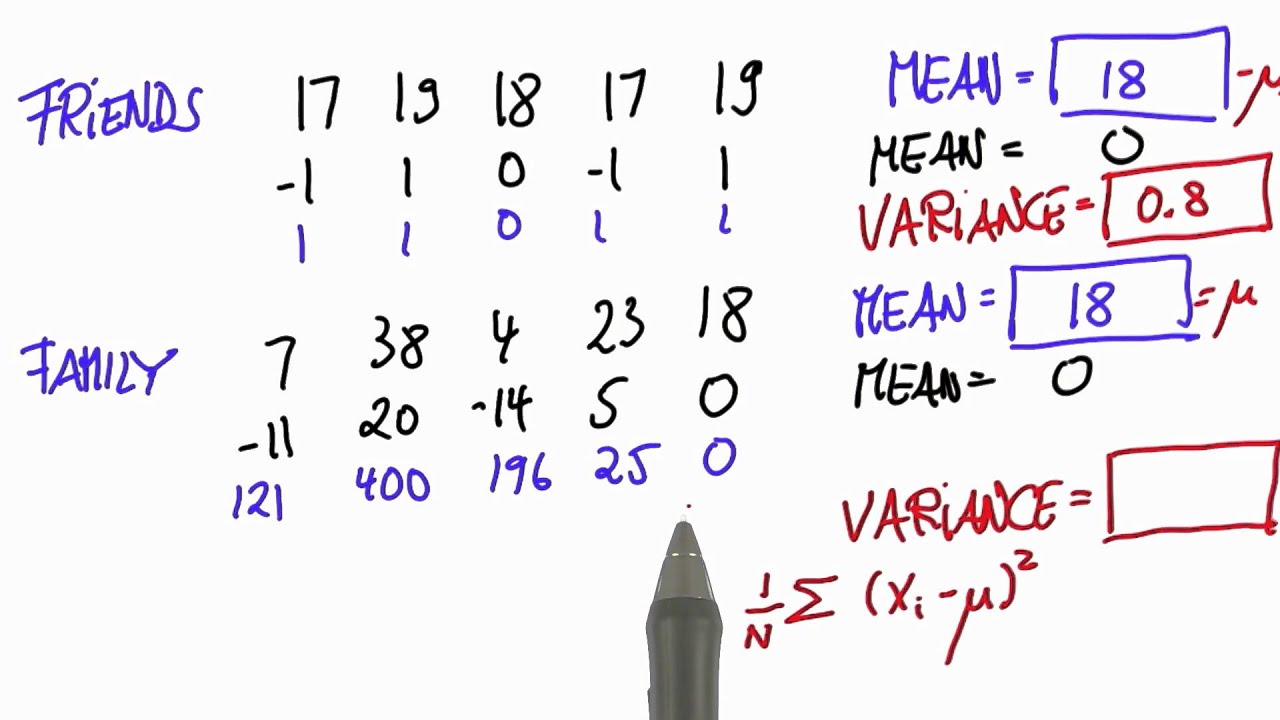 FRiENDS 17 19 18 17 19 MEAN = 18 -μ
-1 1 0 -1 1 MEAN = 0
1 1 0 1 1 VARiANCE = 0.8
FAMILY 7 38 4 23 18 MEAN = 18 = μ
-11 20 -14 5 0 MEAN = 0
121 400 196 25 0
VARiANCE =
1/N Σ (Xi - μ)²